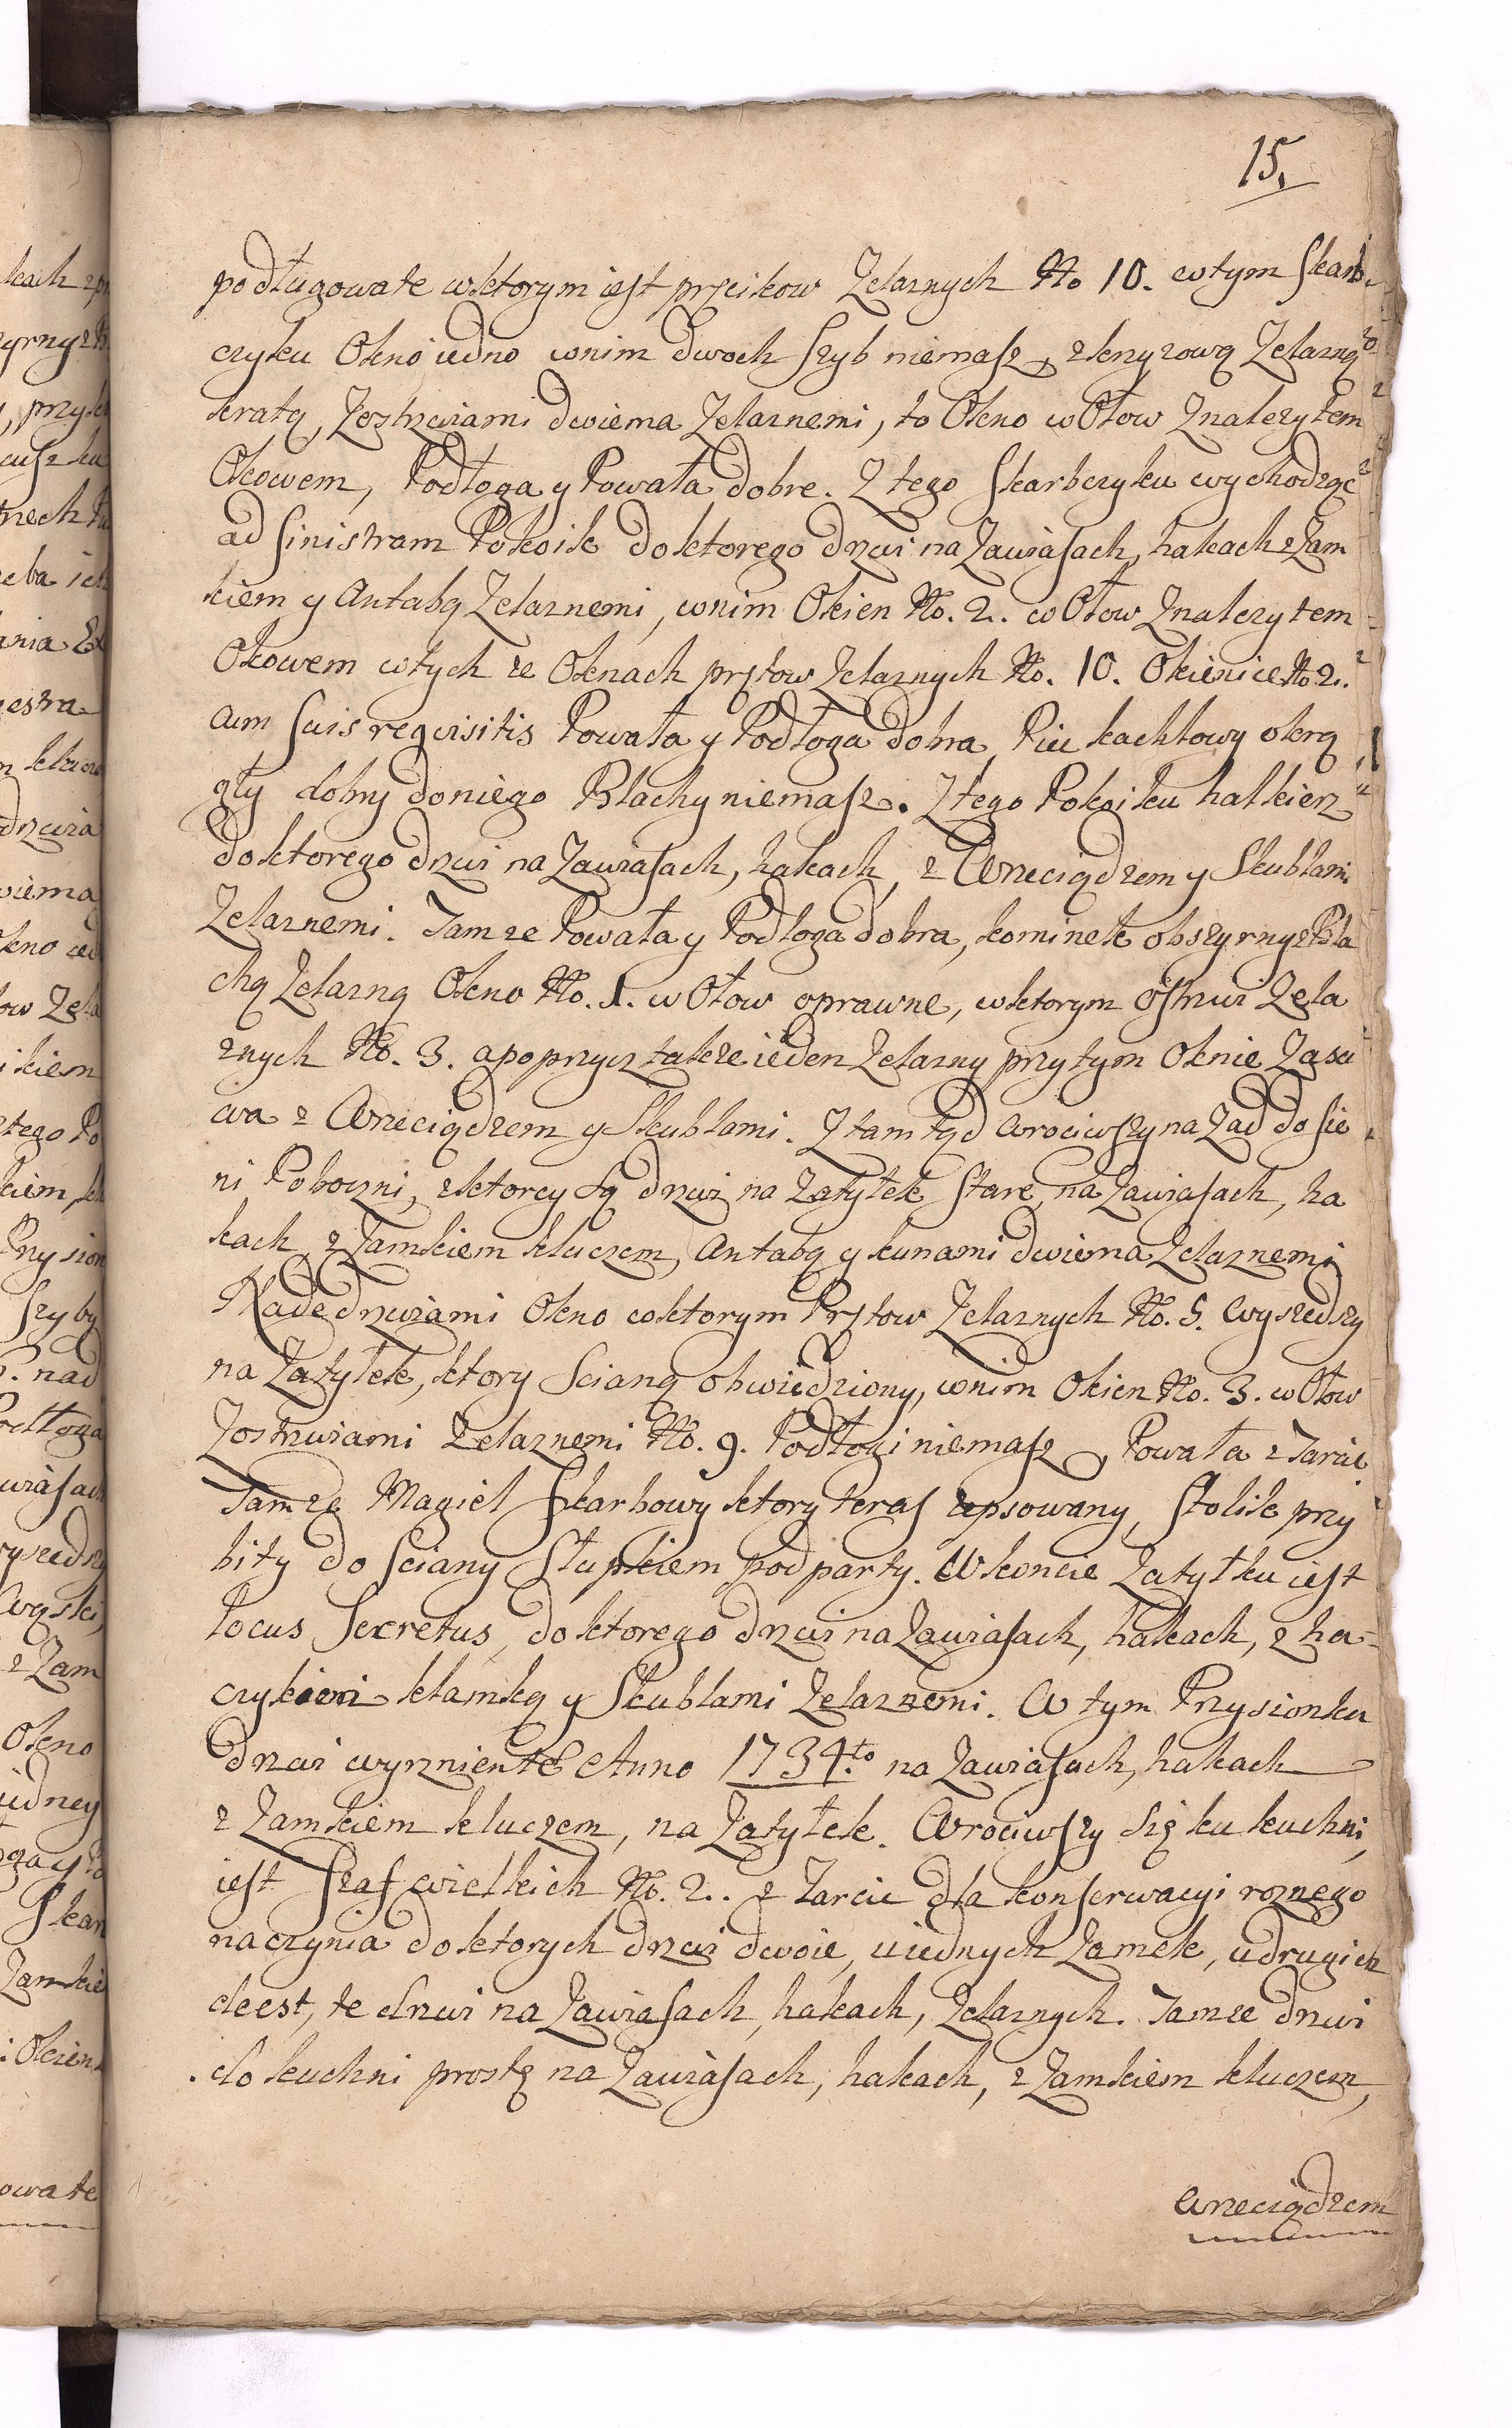 15.
podługowate wktorym iest pręcikow Zelaznych No 10. wtym Skarb
czyku Okno iedno wnim dwoch Szyb niemasz, zkrzyzową Zelazną
kratą, Zostrwiami dwiema Zelaznemi, to Okno wOłow Znalezytem
Okowem, Podłoga y Powała dobre. Z tego Skarbczyku wychodząc
ad sinistram Pokoik doktorego drzwi na Zawiasach, hakach z Zam
kiem y Antabą Zelaznemi, wnim Okien No. 2. wOłow Znalezytem
Okowem wtych ze Oknach prętow Zelaznych No. 10. Okienice No 2.
cum suis requisitis Powała y Podłoga dobra, Piec kachlowy okrą
gły dobry doniego Blachy niemasz. Ztego Pokoiku halkierz
doktorego drzwi na Zawiasach, hakach, z Wrzeciądzem y Skublami
Zelaznemi. Tamze Powała y Podłoga dobra, kominek obszyrny z Bla
chą Zelazną Okno No. 1. w Ołow oprawne, wktorym Ostrwi Zela
znych No. 3. apoprzycz także ieden Zelazny przytym Oknie Zasu
wa z Wrzeciądzem y Skublami. Ztamtąd wrociwszy na Zad do Sie
ni Poboczni, zktorey są drzwi na Zatyłek stare, na Zawiasach, ha
kach, z Zamkiem kluczem, Antabą y kunami dwiema Zelaznemi
Nadedrzwiami Okno wktorym Prętow Zelaznych No. 5. wyszedszy
na Zatyłek, ktory Scianą obwiedziony, wnim Okien No. 3. wOłow
Zostrwiami Zelaznemi No. 9. Podłogi niemasz, Powała z Tarcic
Tamze Magiel Skarbowy ktory teraz zepsowany, Stolik przy
bity do Sciany Słupkiem podparty. Wkoncie Zatyłku iest
Locus Secretus, doktorego drzwi na Zawiasach, hakach, z ha-
czykiem klamką y Skublami Zelaznemi. W tym Przysionku
drzwi wyrznięte Anno 1734.to na Zawiasach, hakach
z Zamkiem kluczem, na Zatyłek. Wrociwszy się ku kuchni,
iest Szaf wielkich No. 2.. z Tarcic dla konserwacyi roznego
naczynia doktorych drzwi dwoie, uiednych Zamek, udrugich
deest, te drzwi na Zawiasach, hakach, Zelaznych. Tamze drzwi
do kuchni prostę na Zawiasach, hakach, z Zamkiem kluczem,
wrzeciądzem